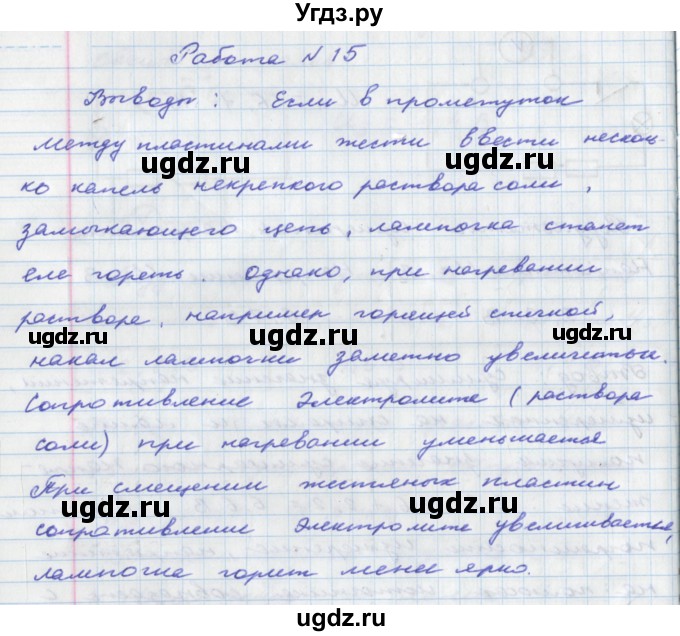 Угдз.ру
Работа N 15
Выводы: Если в промежуток
между пластинами жести ввести несколь-
ко капель некрепкого раствора соли,
замыкающего цепь, лампочка станет
еле гореть. Однако, при нагревании
раствора, например горящей спичкой,
накал лампочки заметно увеличиться.
Сопротивление электролита (раствора
соли) при нагревании уменьшается
При смещении жестяных пластин
сопротивление электролита увеличивается,
лампочка горит менее ярко.
ugdz.ru
ugdz.ru
ugdz.ru
ugdz.ru
ugdz.ru
ugdz.ru
ugdz.ru
ugdz.ru
ugdz.ru
ugdz.ru
ugdz.ru
ugdz.ru